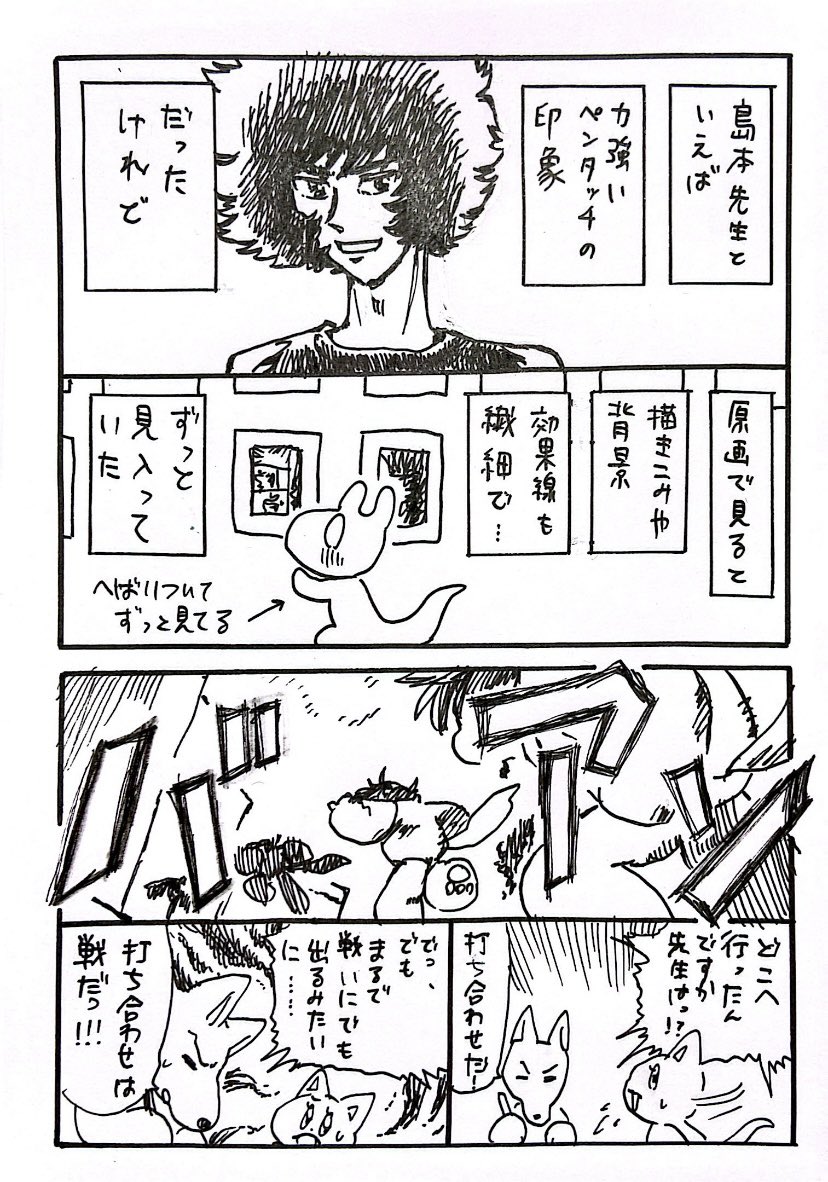 島本先生と
いえば
力強い
ペンタッチの
印象
だった
けれど
原画で見ると
描きこみや
背景
効果線も
繊細で…
ずっと
見入って
いた
へばりついて
ずっと見てる
どこへ
行ったん
ですか
先生はっ!?
打ち合わせだ!
でっ、
でも
まるで
戦いにでも
出るみたい
に……
打ち合わせは
戦だっ!!!